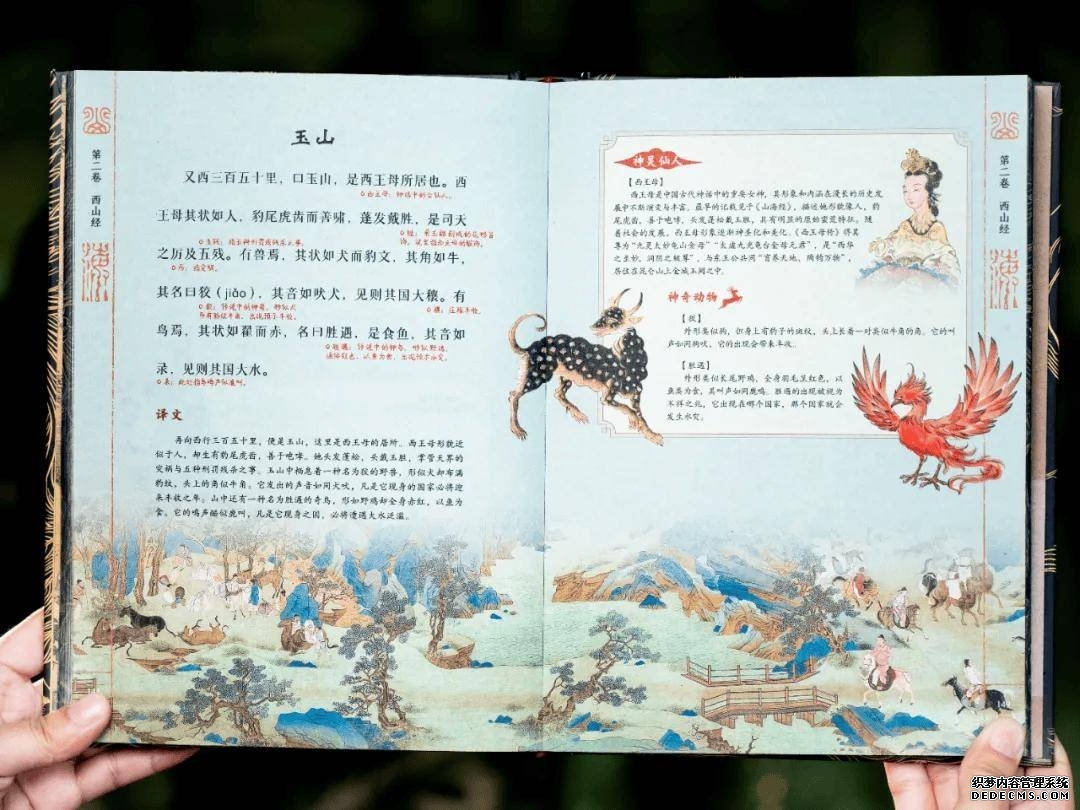 第二卷 西山经
玉山
又西三百五十里，曰玉山，是西王母所居也。西
西王母：神话中的女仙人。
王母其状如人，豹尾虎齿而善啸，蓬发戴胜，是司天
之厉及五残。有兽焉，其状如犬而豹文，其角如牛，
其名曰狡（jiǎo），其音如吠犬，见则其国大穰。有
穰：庄稼丰收。
鸟焉，其状如翟而赤，名曰胜遇，是食鱼，其音如
录，见则其国大水。
译文
再向西行三百五十里，便是玉山，这里是西王母的居所。西王母形貌近
似于人，却生有豹尾虎齿，善于咆哮。她头发蓬松，头戴玉胜，掌管天界的
灾祸与五种刑罚残杀之事。玉山中栖息着一种名为狡的野兽，形似犬却布满
豹纹，头上的角似牛角。它发出的声音如同犬吠，凡是它现身的国家必将迎
来丰收之年。山中还有一种名为胜遇的奇鸟，形如野鸡却全身赤红，以鱼为
食。它的鸣声酷似鹿叫，凡是它现身之国，必将遭遇大水泛滥。
神灵仙人
【西王母】
西王母是中国古代神话中的重要女神，其形象和内涵在漫长的历史发
展中不断演变与丰富。最早的记载见于《山海经》，描述她形貌像人，豹
尾虎齿，善于咆哮，头发蓬松戴玉胜，具有明显的原始蛮荒特征。随
着社会的发展，西王母形象逐渐神圣化和美化。《西王母传》将其
尊为“九灵太妙龟山金母”“太虚九光龟台金母元君”，是“西华
之至妙，洞阴之极尊”，与东王公共同“育养天地，陶钧万物”，
居住在昆仑山上金城玉阙之中。
神奇动物
【狡】
外形类似狗，但身上有豹子的斑纹，头上长着一对类似牛角的角。它的叫
声如同狗吠，它的出现会带来丰收。
【胜遇】
外形类似长尾野鸡，全身羽毛呈红色，以
鱼类为食，其叫声如同鹿鸣。胜遇的出现被视为
不祥之兆，它出现在哪个国家，那个国家就会
发生水灾。
第二卷 西山经
14
织梦内容管理系统
DEDECMS.COM